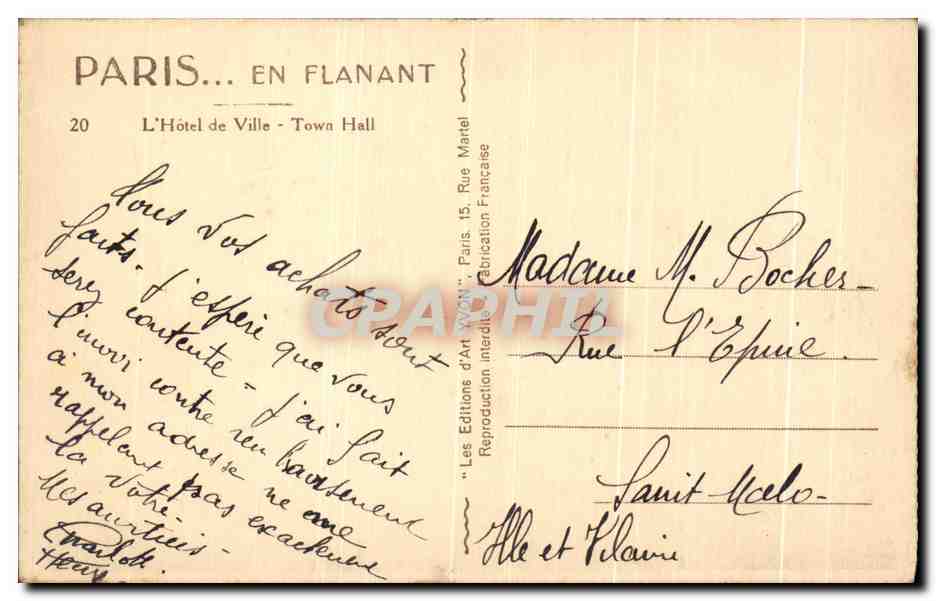 PARIS... EN FLANANT
20 L'Hôtel de Ville - Town Hall
Tous vos achats sont
faits - j'espère que vous
serez contente - j'ai fait
l'envoi contre remboursement
à mon adresse ne me
rappelant pas exactement
la vôtre.
Mes amitiés -
Charlotte
"Les Editions d'Art YVON", Paris. 15, Rue Martel
Reproduction interdite Fabrication Française
CPAPHIL
Madame M. Bocher
Rue l'Epine.
Saint-Malo-
Ille et Vilaine